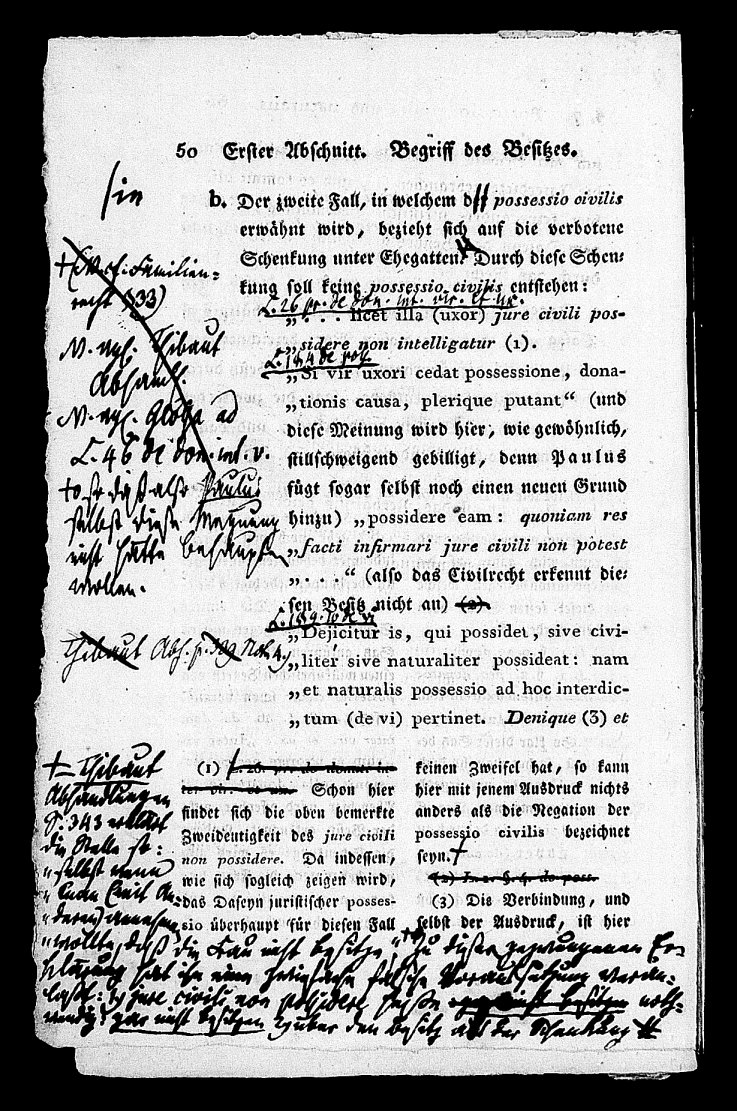 50 Erster Abschnitt. Begriff des Besitzes.
sie
b. Der zweite Fall, in welchem d possessio civilis
erwähnt wird, bezieht sich auf die verbotene
Schenkung unter Ehegatten. Durch diese Schen-
kung soll keine possessio civilis entstehen:
L. 26 pr. de don. int. vir. et ux.
„. . . licet illa (uxor) jure civili pos-
„sidere non intelligatur (1).
L. 1 § 4 de poss.
„Si vir uxori cedat possessione, dona-
„tionis causa, plerique putant“ (und
diese Meinung wird hier, wie gewöhnlich,
stillschweigend gebilligt, denn Paulus
fügt sogar selbst noch einen neuen Grund
hinzu) „possidere eam: quoniam res
„facti infirmari jure civili non potest
„. . . “ (also das Civilrecht erkennt die-
sen Besitz nicht an) (2).
L. 1 § 9. 10 de vi
„Dejicitur is, qui possidet, sive civi-
„liter sive naturaliter possideat: nam
„et naturalis possessio ad hoc interdic-
„tum (de vi) pertinet. Denique (3) et
Familien-
recht 533)
N. vgl. Thibaut
Abhandl.
N. vgl. Glosse ad
L. 46 de don. int. v.
so daß also Paulus
selbst diese Meynung
nicht hätte behaupten
wollen.
Thibaut Abh. p.
(1) L. 26. pr. de donat. in-
ter vir. et ux. Schon hier
findet sich die oben bemerkte
Zweideutigkeit des jure civili
non possidere. Da indessen,
wie sich sogleich zeigen wird,
das Daseyn juristischer posses-
sio überhaupt für diesen Fall
keinen Zweifel hat, so kann
hier mit jenem Ausdruck nichts
anders als die Negation der
possessio civilis bezeichnet
seyn.
(2) L. 1. §. 4. de poss.
(3) Die Verbindung, und
selbst der Ausdruck, ist hier
Thibaut
Abhandlungen
S. 343 erklärt
die Stelle so:
„selbst wenn
„man (mit An-
„deren) annehmen
„wollte, daß die Frau nicht besitze,“ Zu dieser gezwungenen Er-
klärung hat ihn eine falsche Voraussetzung veran-
laßt: jure civili non possidere heiße noth-
wendig: gar nicht besitzen über den Besitz aus der Schenkung